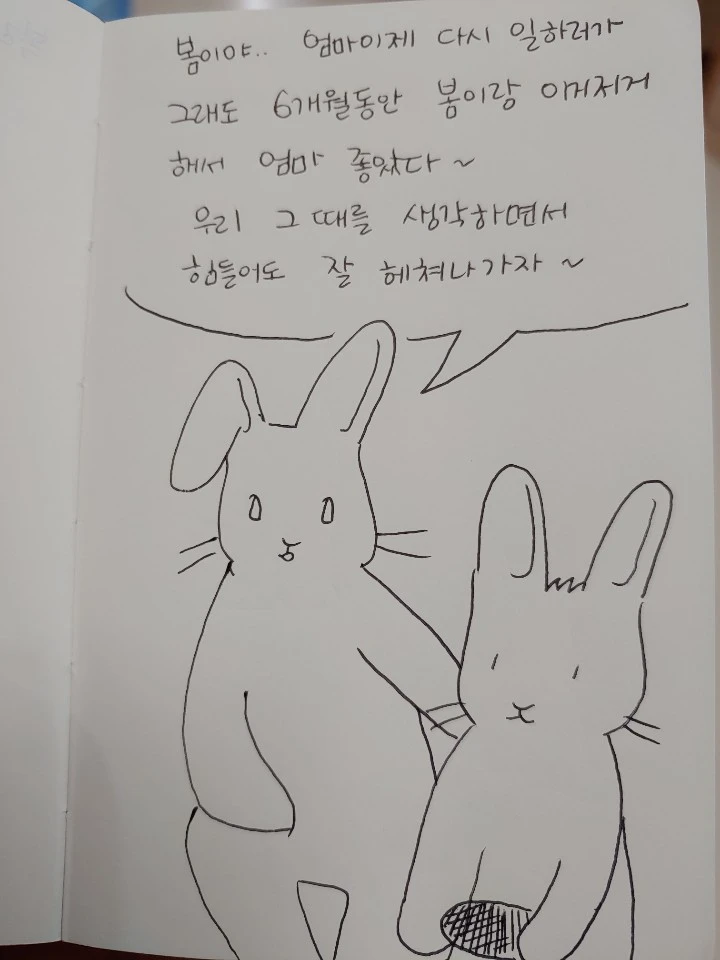 봄이야.. 엄마이제 다시 일하러가
그래도 6개월동안 봄이랑 이거저거
해서 엄마 좋았다~
우리 그 때를 생각하면서
힘들어도 잘 헤쳐나가자~